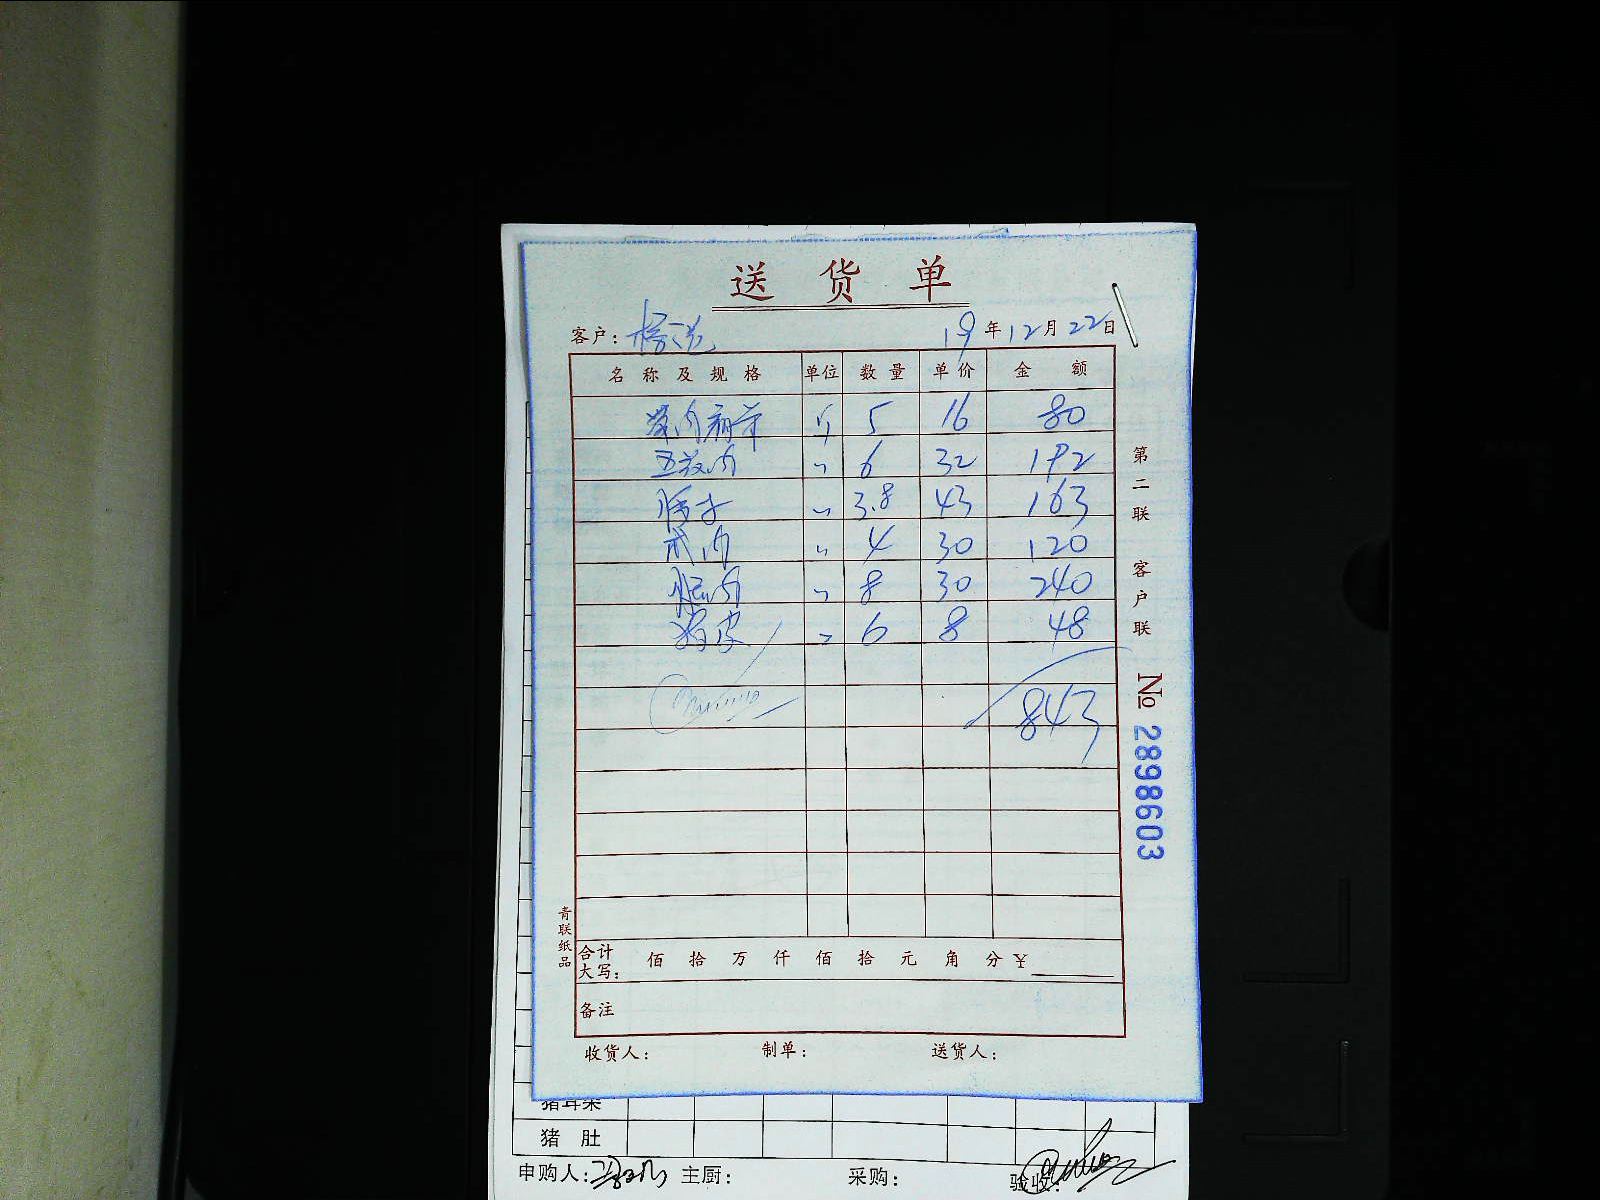 送货单
客户: 19年12月22日
名称及规格 单位 数量 单价 金额
斤 5 16 80
五花肉 〃 6 32 192
〃 3.8 43 163
肉 〃 4 30 120
肉 〃 8 30 240
猪皮 〃 6 8 48
843
合计大写: 佰 拾 万 仟 佰 拾 元 角 分 ¥
备注
收货人: 制单: 送货人:
第二联 客户联
№ 2898603
青联纸品
猪耳朵
猪肚
申购人: 主厨: 采购: 验收: